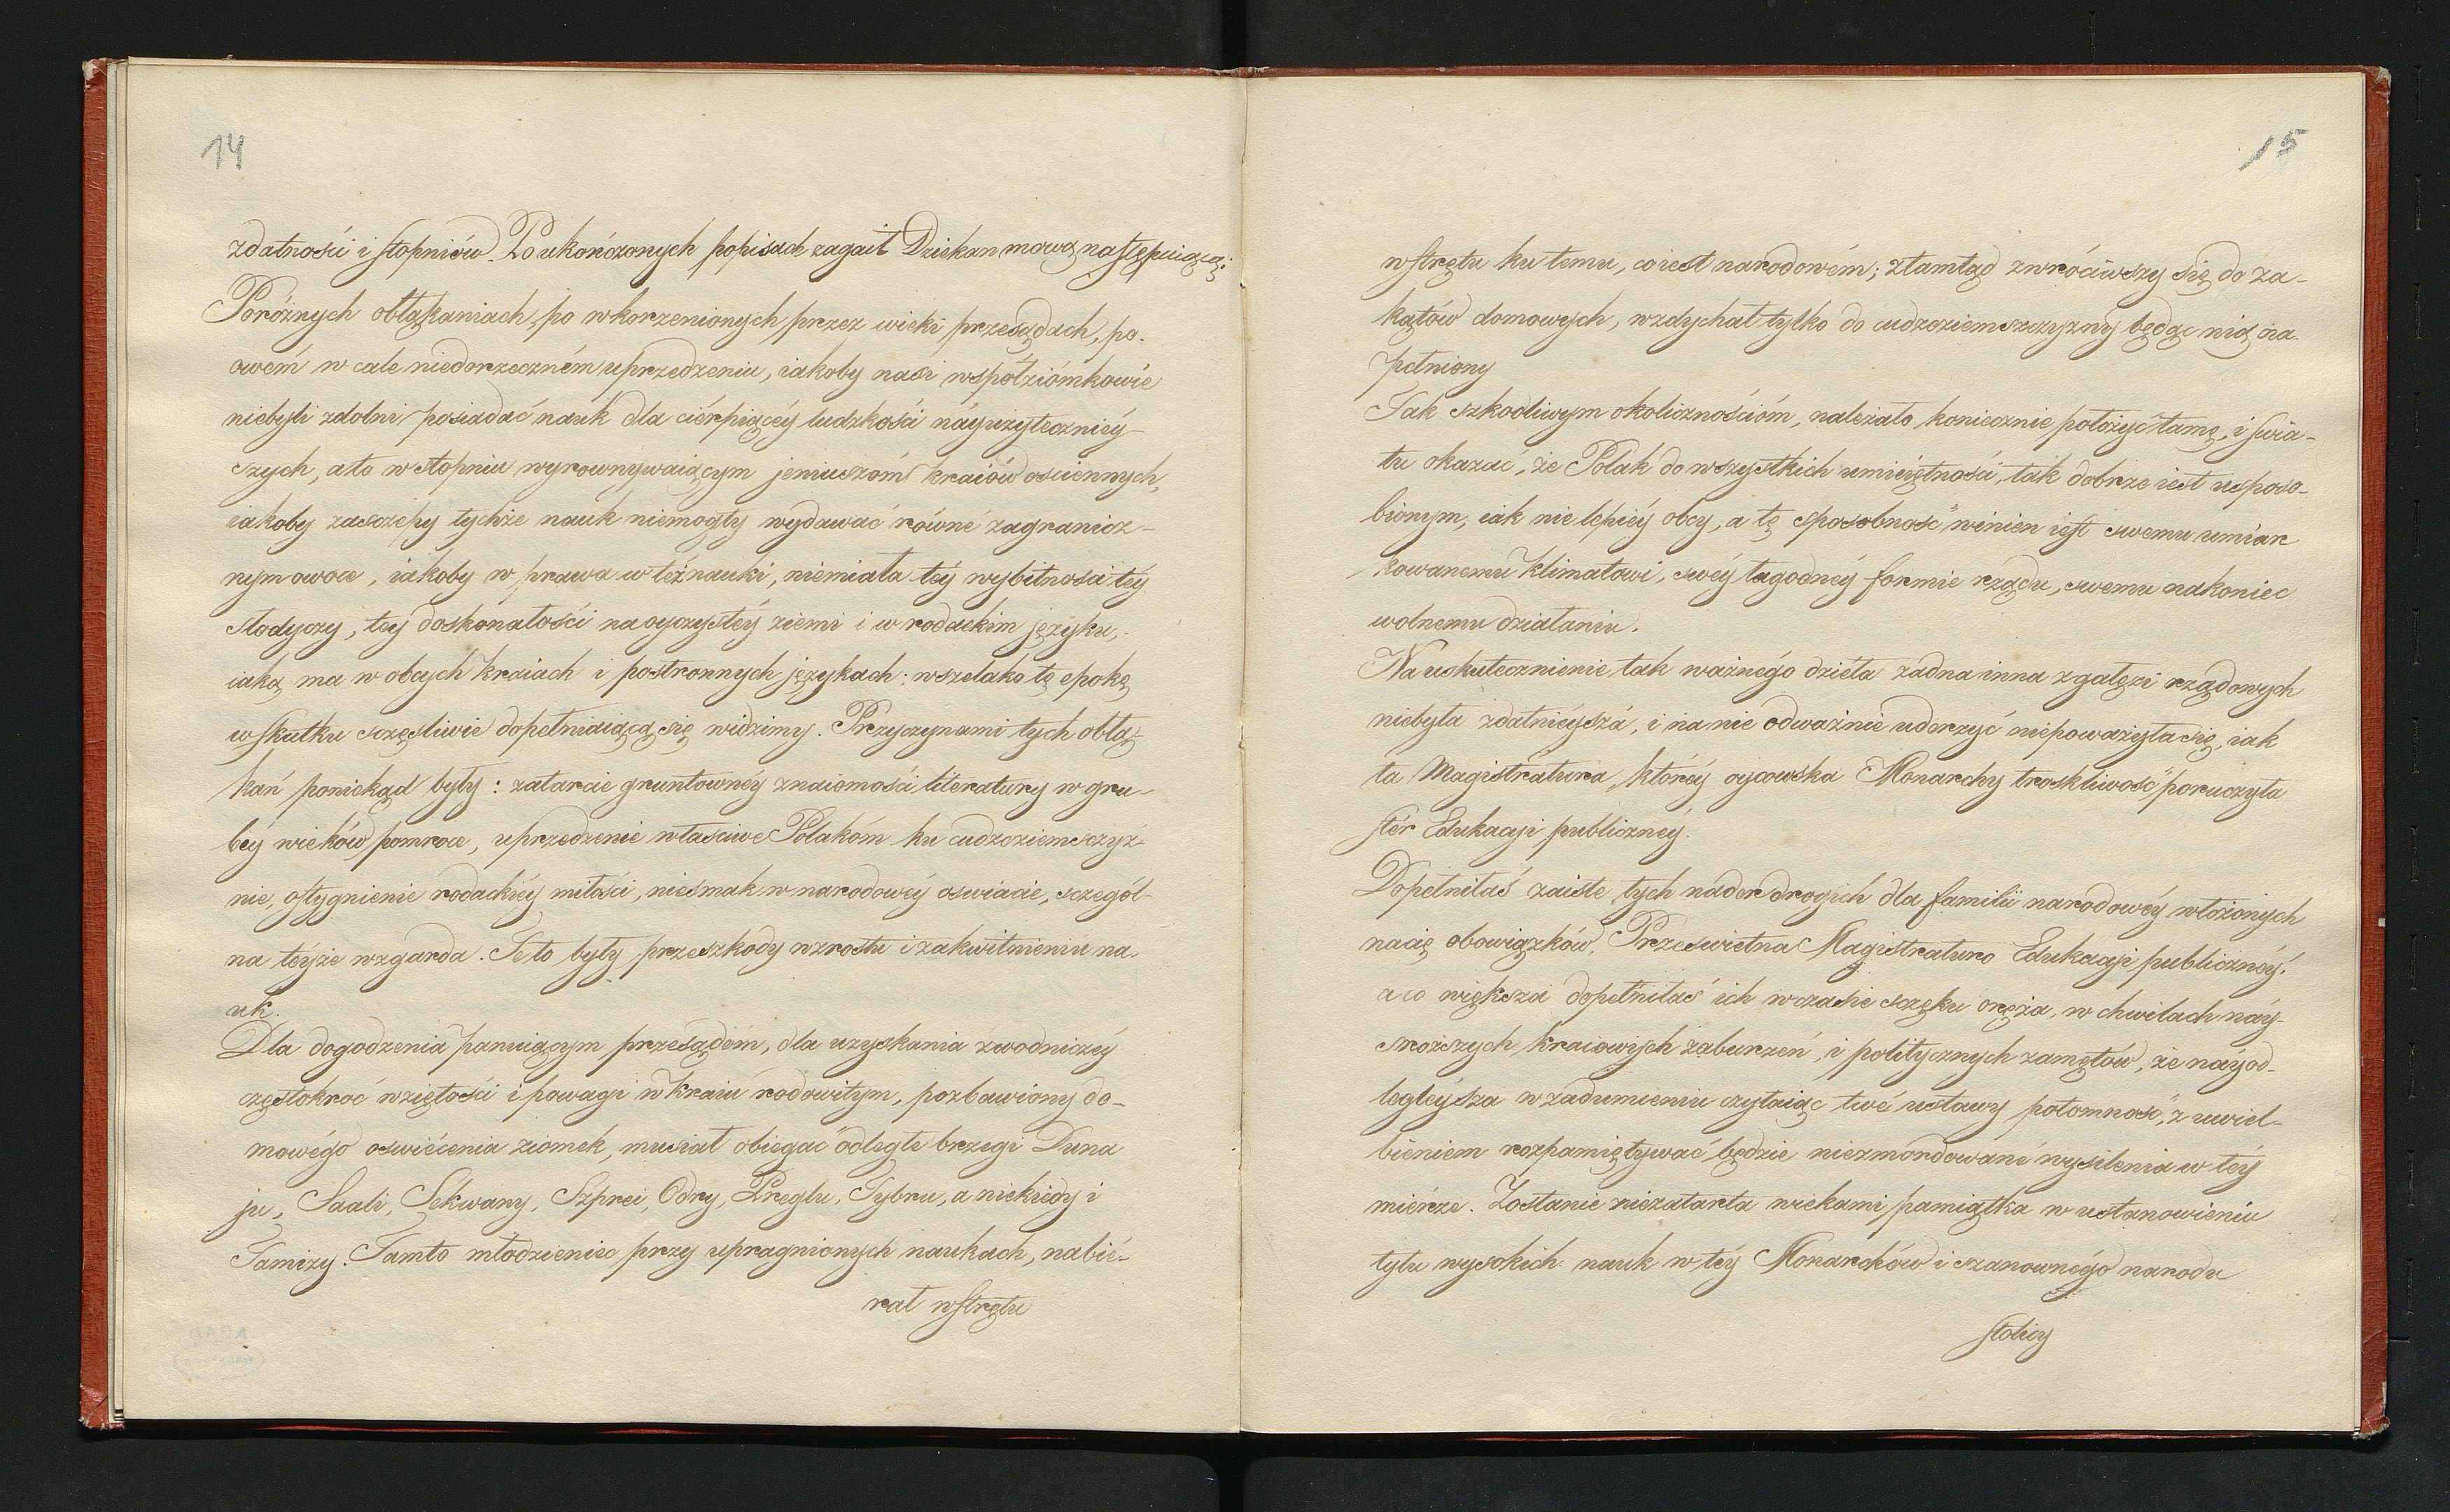 14
zdatności i stopniów. Po ukończonych popisach zagaił Dziekan mową następuiącą:
Poróżnych obłąkaniach, po wkorzenionych przez wieki przesądach, po.
owém w cale niedorzeczném uprzedzeniu, iakoby nasi wspołziómkowie
niebyli zdolni posiadać nauk dla ciérpiącéy ludzkości náyużyteczniéy
szych, a to w stopniu wyrownywaiącym jeniuszóm kraiów ościennych,
iakoby zaszczepy tychże nauk niemogły wydawać równé zagranicz-
nym owoce, iakoby w prawa w téż nauki, niemiała téy wybitności téy
słodyczy, tey doskónałości na oyczystéy ziemi i w rodackim języku,
iaką ma w obcych kraiach i postronnych językach: wszelako tę epokę
w skutku szczęśliwie dopełniaiącą się widzimy. Przyczynami tych obłą-
kań poniekąd były: zatarcie gruntownéy znaiomości literatury w gru-
béy wieków pomroce, uprzedzenie właściwe Polakóm ku cudzoziemszczyz-
nie, ostygnienie rodackiéy miłości, niesmak w narodowéy oswiacie, szczegól-
na téyże wzgarda. Te to były przeszkody wzrostu i zakwitnieniu na.
uk.
Dla dogodzenia panuiącym przesądóm, dla uzyskania zwodniczéy
częstokroć wziętości i powagi w kraiu rodowitym, pozbawiony do-
mowégo oswiécenia ziomek, musiał obiegać odległe brzegi Duna
ju, Saali, Sekwany, Szprei, Odry, Preglu, Tybru, a niekiedy i
Tamizy. Tamto młodzieniec przy upragnionych naukach, nabié-
rał wstrętu
15
wstrętu ku temu, co iest narodowém; ztamtąd zwróciwszy się do za-
kątów domowych, wzdychał tylko do cudzoziemszczyzny będąc nią na.
pełniony
Tak szkodliwym okolicznościóm, należało koniecznie położyć tamę, i świa-
tu okazać, że Polak do wszystkich umieiętności, tak dobrze iest usposo-
bionym, iak nie lepiéy obcy, a tę sposobność winien iest swemu umiar
kowanemu klimatowi, swéy łagodnéy formie rządu, swemu nakoniec
wolnemu działaniu.
Na uskutecznienie tak ważnégo dziéła żadna inna z gałęzi rządowych
niebyła zdatniéyszá, i na nie odważnie uderzyć niepoważyła się, iak
ta Magistratura, któréy oycowska Monarchy troskliwość poruczyła
stér Edukacyi publicznéy.
Dopełniłaś zaiste tych náder drogich dla familii narodowéy włożonych
na cię obowiązków, Prześwietna Magistraturo Edukacyi publicznéy!
a co większa dopełniłaś ich w czasie szczęku oręża, w chwilach náy-
srozszych kraiowych zaburzeń, i politycznych zamętów, że náyod-
legléysza w zadumieniu czytaiąc twé ustawy potomność, z uwiel-
bieniem rozpamiętywać będzie niezmórdowané wysilenia w téy
miérze. Zostanie niezatarta wiekami pamiątka w ustanowieniu
tylu wysokich nauk w téy Monarchów i szanownégo narodu
stolicy